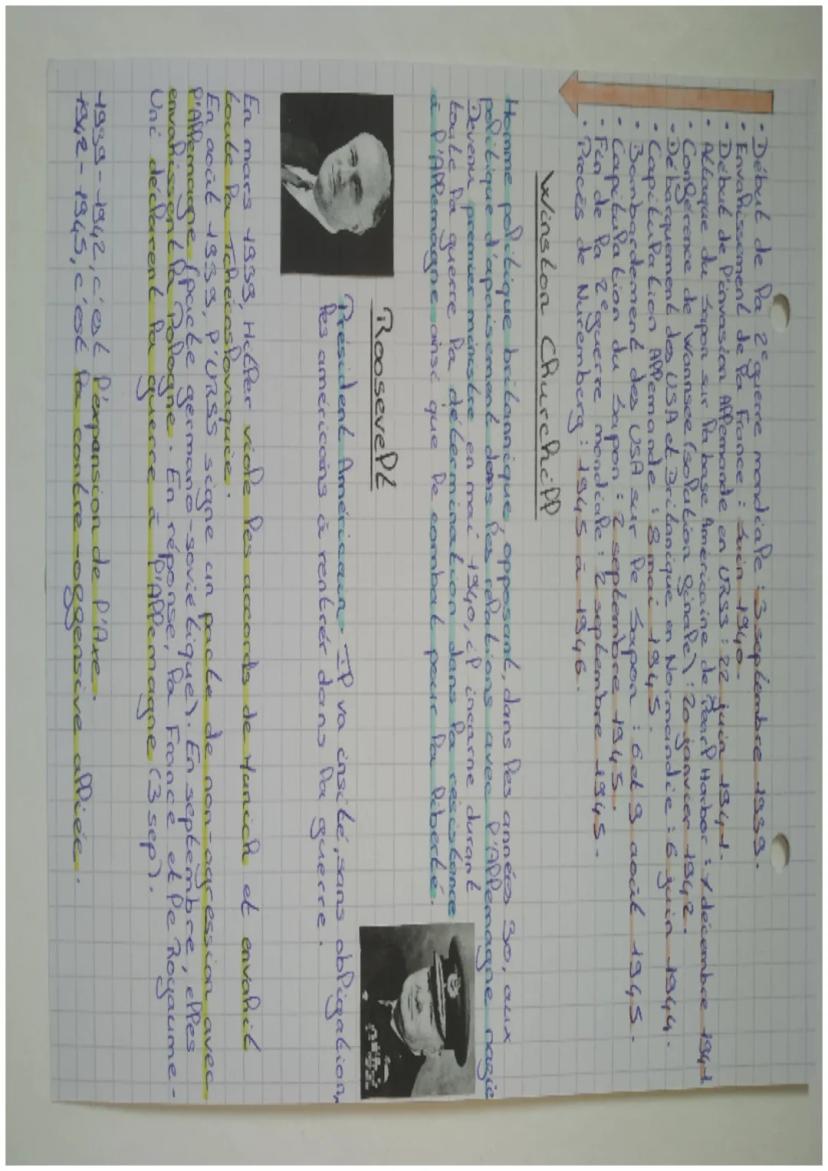 • Début de la 2e guerre mondiale : 3 septembre 1939.
• Envahissement de la France : Juin 1940.
• Début de l'invasion Allemande en URSS : 22 juin 1941.
• Attaque du Japon sur la base Américaine de Pearl Harbor : 7 décembre 1941
• Conférence de Wannsee (solution finale) : 20 janvier 1942.
• Débarquement des USA et Britannique en Normandie : 6 juin 1944.
• Capitulation Allemande : 8 mai 1945.
• Bombardement des USA sur le Japon : 6 et 9 août 1945.
• Capitulation du Japon : 2 septembre 1945.
• Fin de la 2e guerre mondiale : 2 septembre 1945.
• Procès de Nuremberg : 1945 à 1946.
Winston Churchill
Homme politique britannique, opposant, dans les années 30, aux
politique d'apaisement dans les relations avec l'Allemagne nazie
Devenu premier ministre en mai 1940, il incarne durant
toute la guerre la détermination dans la résistance
à l'Allemagne ainsi que le combat pour la liberté.
Roosevelt
Président Américain. Il va incité, sans obligation,
les américains à rentrer dans la guerre.
En mars 1939, Hitler viole les accords de Munich et envahit
toute la Tchécoslovaquie.
En août 1939, l'URSS signe un pacte de non-agression avec
l'Allemagne (pacte germano-soviétique). En septembre, elles
envahissent la Pologne. En réponse, la France et le Royaume-
Uni déclarent la guerre à l'Allemagne (3 sep).
-1939-1942, c'est l'expansion de l'Axe.
-1942-1945, c'est la contre-offensive alliée.